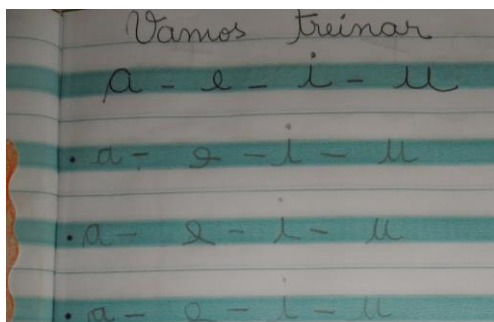 Vamos treinar
a - e - i - u
• a - e - i - u
• a - e - i - u
• a - e - i - u